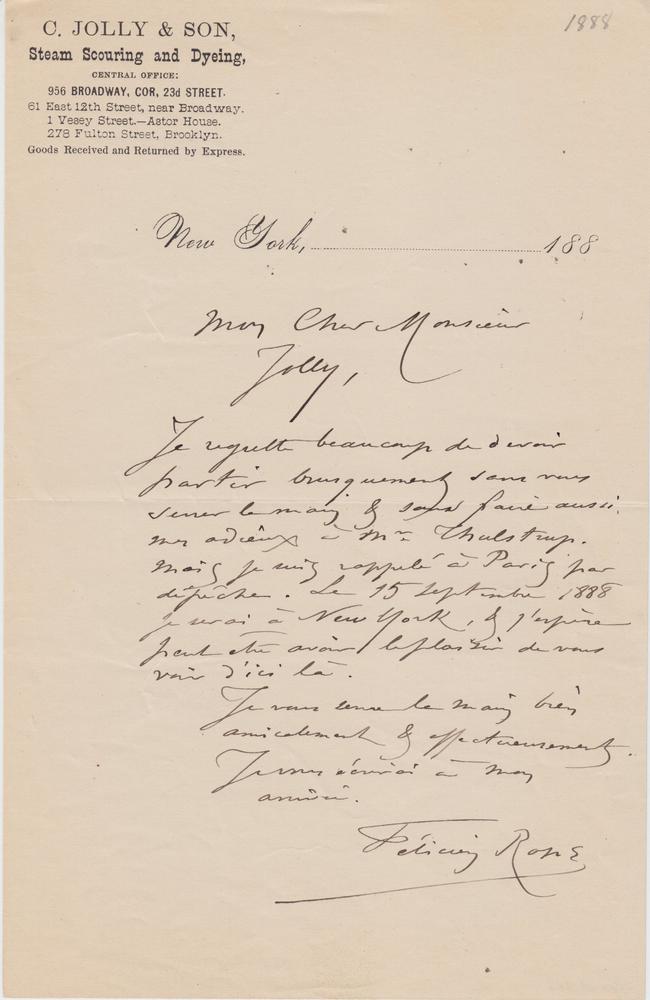 1888
C. JOLLY & SON,
Steam Scouring and Dyeing,
CENTRAL OFFICE:
956 BROADWAY, COR, 23d STREET.
61 East 12th Street, near Broadway.
1 Vesey Street.—Astor House.
278 Fulton Street, Brooklyn.
Goods Received and Returned by Express.
New York, 188
Mon Cher Monsieur
Jolly,
Je regrette beaucoup de devoir
partir brusquement sans vous
serrer la main & sans faire aussi
mes adieux à Mr Thulstrup.
Mais je suis rappelé à Paris par
dépêche. Le 15 Septembre 1888
je serai à New York, & j'espère
peut être avoir le plaisir de vous
voir d'ici là.
Je vous serre la main bien
amicalement & affectueusement.
Je vous écrirai à mon
arrivée.
Félicien Rops